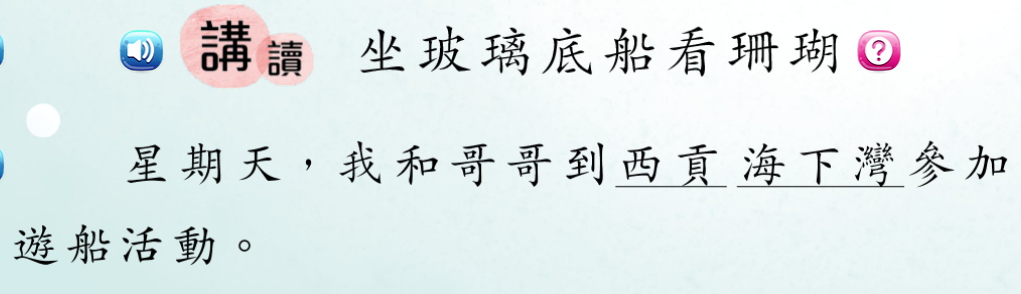 講讀 坐玻璃底船看珊瑚?
星期天，我和哥哥到西貢海下灣參加
遊船活動。